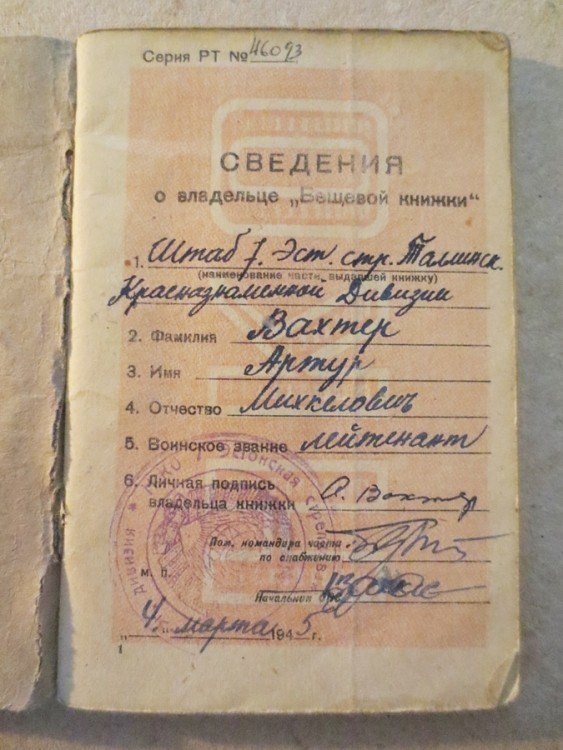 Серия РТ № 46093
СВЕДЕНИЯ
о владельце „Вещевой книжки“
1. Штаб 7. Эст. стр. Таллинск.
(наименование части, выдавшей книжку)
Краснознаменной Дивизии
2. Фамилия Вахтер
3. Имя Артур
4. Отчество Михкелович
5. Воинское звание лейтенант
6. Личная подпись
владельца книжки А. Вахтер
Пом. командира части
по снабжению
м. п.
Начальник
„4“ марта 1945 г.
1